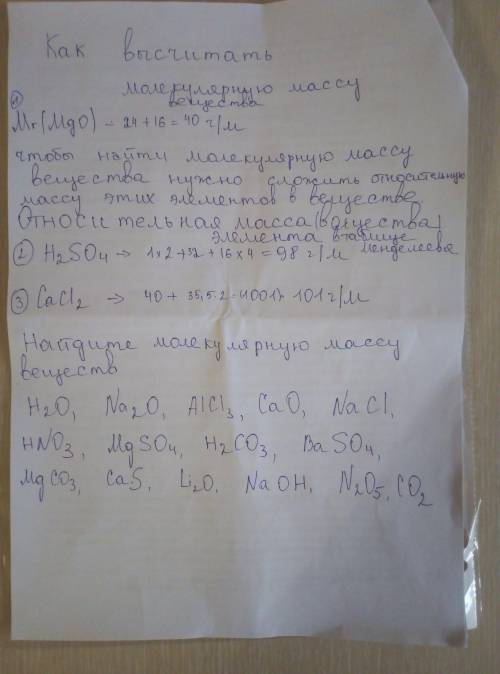 Как высчитать
молекулярную массу
вещества
① Mr(MgO) = 24 + 16 = 40 г/м
чтобы найти молекулярную массу
вещества нужно сложить относительную
массу этих элементов в веществе.
Относительная масса (вещества)
элемента в таблице
② H2SO4 → 1×2+32+16×4=98 г/м менделеева
③ CaCl2 → 40 + 35,5·2 = 101 г/м
Найдите молекулярную массу
веществ
H2O, Na2O, AlCl3, CaO, NaCl,
HNO3, MgSO4, H2CO3, BaSO4,
MgCO3, CaS, Li2O, NaOH, N2O5, CO2